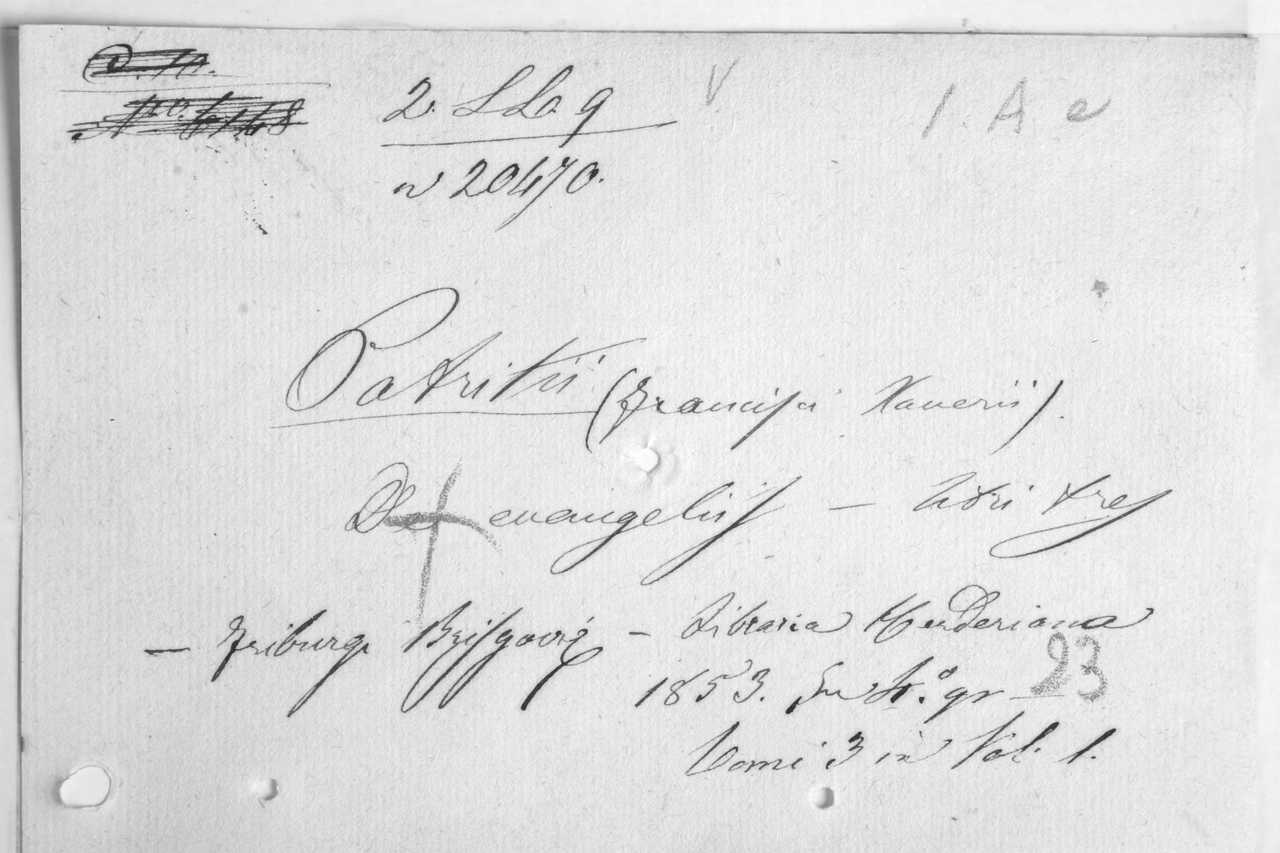 2. L La 9
n 20470.
1. A e
Patritii (Francisci Xaverii).
De evangeliis — libri tres
— Friburgi Brisgoviæ — Libraria Herderiana
1853. In 4.º gr
23
tomi 3 in Vol. 1.